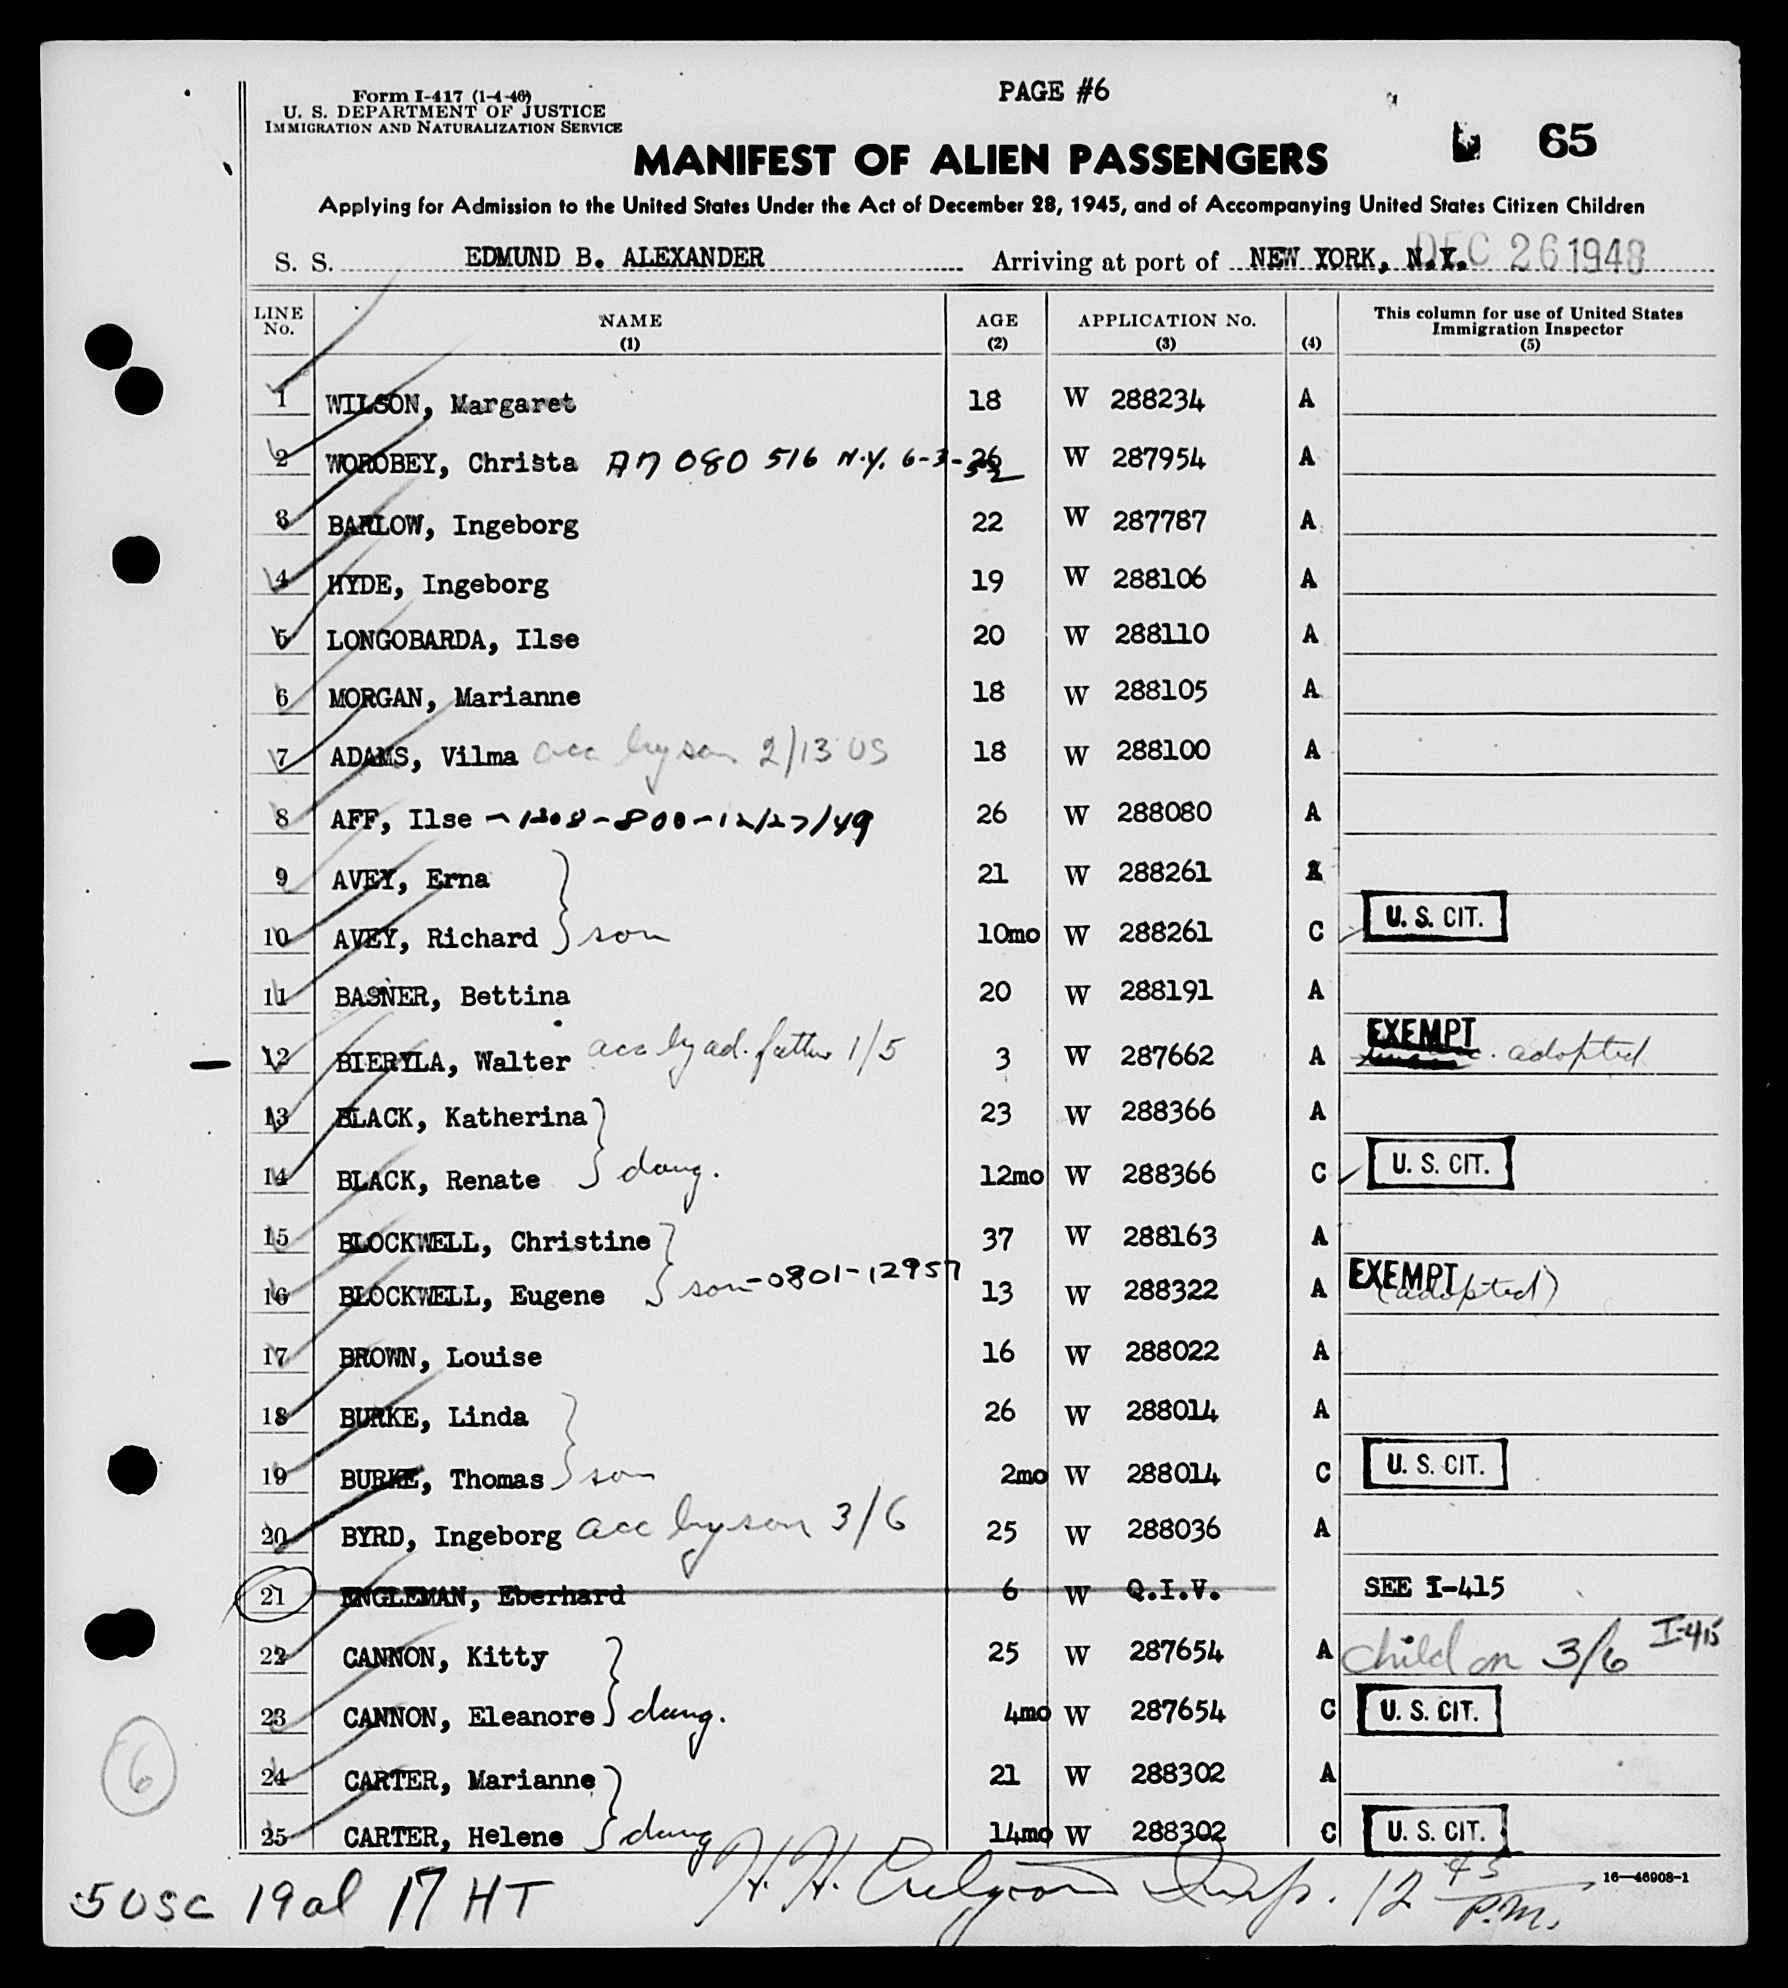 Form I-417 (1-4-46)
U. S. DEPARTMENT OF JUSTICE
IMMIGRATION AND NATURALIZATION SERVICE
PAGE #6
65
MANIFEST OF ALIEN PASSENGERS
Applying for Admission to the United States Under the Act of December 28, 1945, and of Accompanying United States Citizen Children
S. S. EDMUND B. ALEXANDER Arriving at port of NEW YORK, N.Y. DEC 26 1948
LINE No. NAME (1) AGE (2) APPLICATION No. (3) (4) This column for use of United States Immigration Inspector (5)
1 WILSON, Margaret 18 W 288234 A
2 WOROBEY, Christa A7 080 516 N.Y. 6-3-52 26 W 287954 A
3 BARLOW, Ingeborg 22 W 287787 A
4 HYDE, Ingeborg 19 W 288106 A
5 LONGOBARDA, Ilse 20 W 288110 A
6 MORGAN, Marianne 18 W 288105 A
7 ADAMS, Vilma acc by son 2/13 US 18 W 288100 A
8 AFF, Ilse - 1208-800-12/27/49 26 W 288080 A
9 AVEY, Erna 21 W 288261 A
10 AVEY, Richard } son 10mo W 288261 C U. S. CIT.
11 BASNER, Bettina 20 W 288191 A
12 BIERYLA, Walter acc by ad. father 1/5 3 W 287662 A EXEMPT adopted
13 BLACK, Katherina 23 W 288366 A
14 BLACK, Renate } daug. 12mo W 288366 C U. S. CIT.
15 BLOCKWELL, Christine 37 W 288163 A
16 BLOCKWELL, Eugene } son-0801-12957 13 W 288322 A EXEMPT (adopted)
17 BROWN, Louise 16 W 288022 A
18 BURKE, Linda 26 W 288014 A
19 BURKE, Thomas } son 2mo W 288014 C U. S. CIT.
20 BYRD, Ingeborg acc by son 3/6 25 W 288036 A
21 ENGLEMAN, Eberhard 6 W Q.I.V. SEE I-415
22 CANNON, Kitty 25 W 287654 A child on 3/6 I-415
23 CANNON, Eleanore } daug. 4mo W 287654 C U. S. CIT.
24 CARTER, Marianne 21 W 288302 A
25 CARTER, Helene } daug 14mo W 288302 C U. S. CIT.
6
5 USC 19 al 17 HT H. H. Insp. 12 45 P.M.
16—46908-1